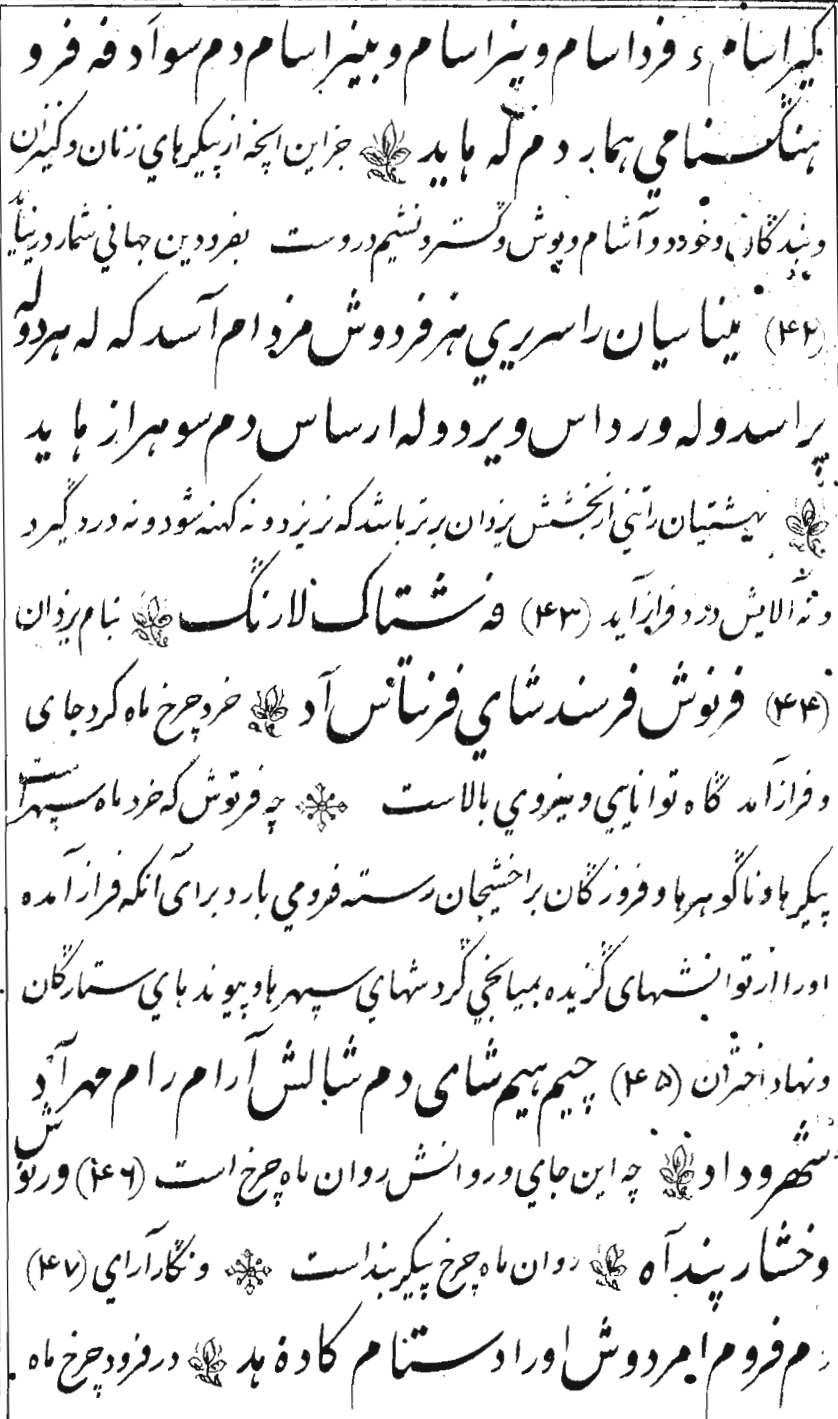 گیراسام و فرداسام و ینراسام و بینراسام دم سواد فه فرو
هنگسنامی همار دم که هاید جز این انچه از پیکرهای زنان و کنیزان
و بندگان و خورد و آشام و پوش و گستر و نشیم دروست بفرودین جهانی شمار در نیاید
(۴۲) مینا سیان را سریری هنر فردوش مزدام آسد که له هردوله
پراسد وله ورداس ویرد وله ارساس دم سو هراز هاید
بهشتیان را تنی از بخشش یزدان برتر باشد که نریزد و نه کهنه شود و نه درد گیرد
و نه آلایش درو فراز آید (۴۳) فه شتاک زلارنگ بنام یزدان
(۴۴) فرنوش فرسند شای فرنتاس آد خرد چرخ ماه گرد جای
و فراز آمد گاه توانایی و نیروی بالاست چه فرتوش که خرد ماه سپهر است
پیکرها و ناگوهرها و فروزگان بر اخشیجان رسته فرو می بارد برای آنکه فراز آمده
او را از توانشهای گزیده بمیانجی گردشهای سپهرها و پیوندهای ستارگان
و نهاد اختران (۴۵) چیم هیم شای دم شالش آرام رام مهر آد
شهروداد چه این جای و روانش روان ماه چرخ است (۴۶) ورنوش
و خشار پند آه روان ماه چرخ پیکر بند است و نگار آرای (۴۷)
دم فروم امردوش اورا دستنام کاده هد در فرود چرخ ماه